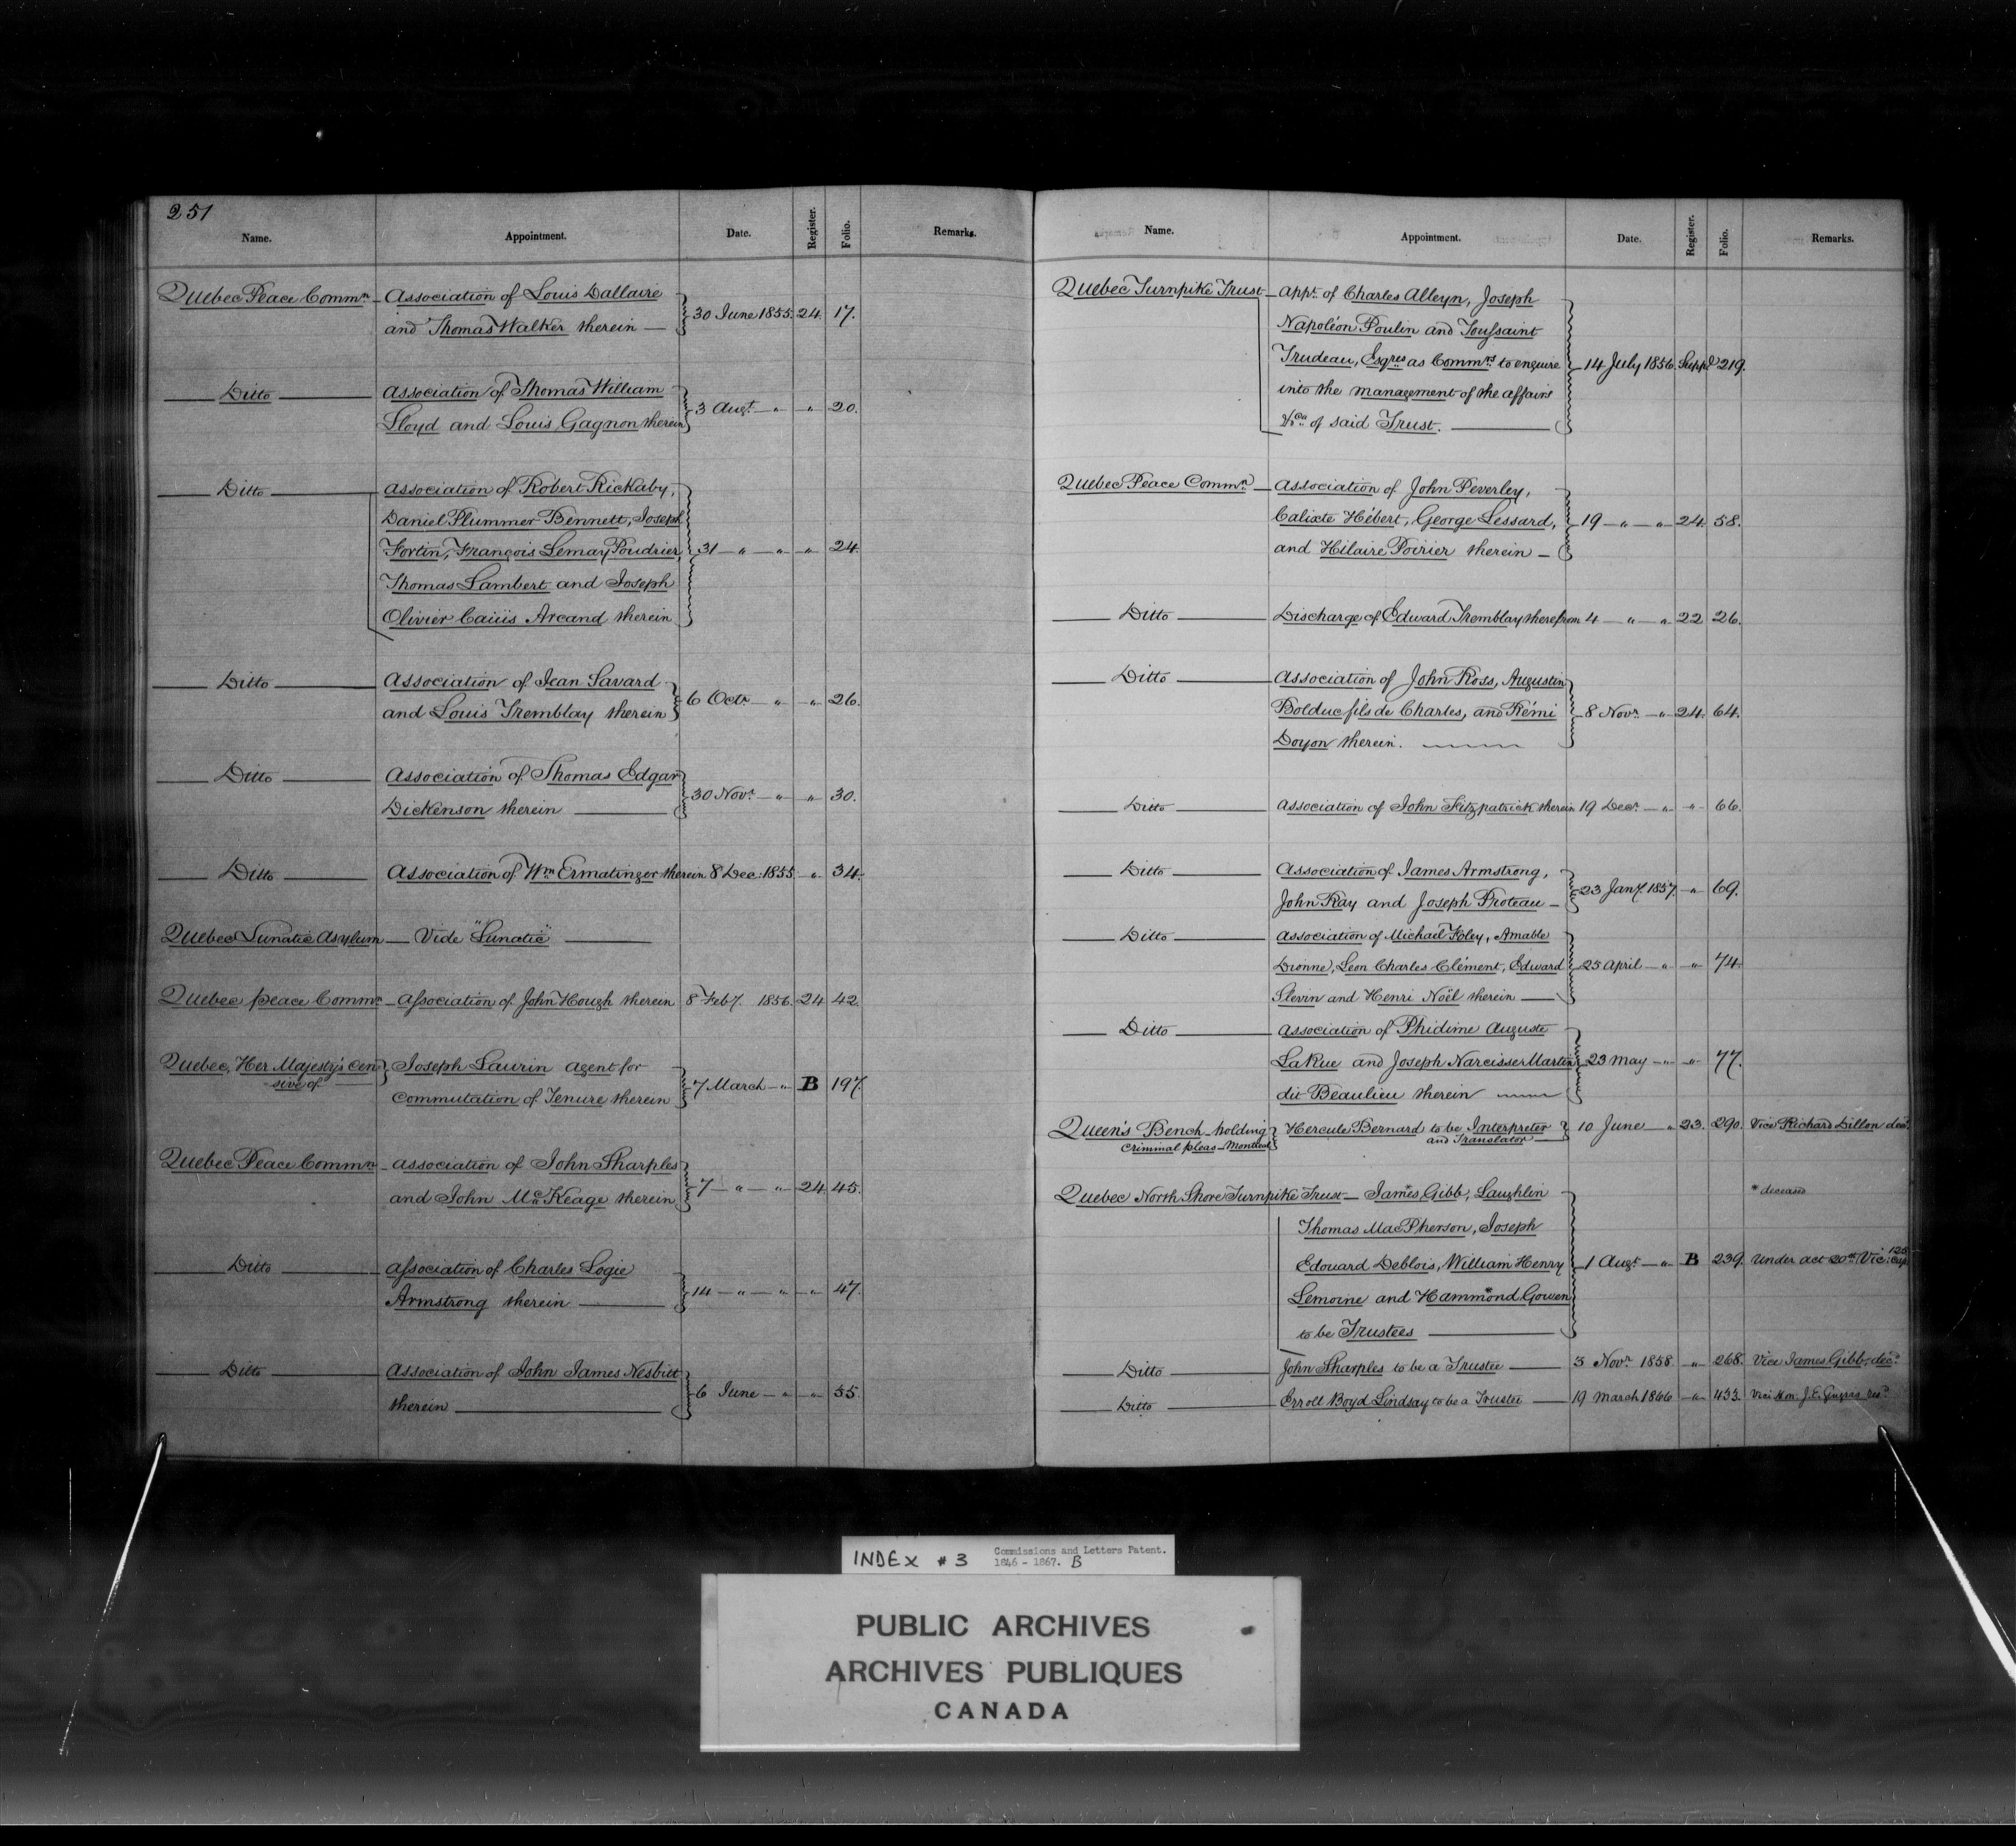 251
Name. Appointment. Date. Register. Folio. Remarks.
Quebec Peace Commn Association of Louis Dallaire
and Thomas Walker therein 30 June 1855. 24. 17.
Ditto Association of Thomas William
Lloyd and Louis Gagnon therein 3 Augt " " 20.
Ditto Association of Robert Rickaby,
Daniel Plummer Bennett, Joseph
Fortin, François Lemay Poudrier, 31 " " " 24.
Thomas Lambert and Joseph
Olivier Caïüs Arcand therein
Ditto Association of Jean Savard
and Louis Tremblay therein 6 Octr " " 26.
Ditto Association of Thomas Edgar
Dickenson therein 30 Novr " " 30.
Ditto Association of Wm Ermatinger therein 8 Dec: 1855 " 34.
Quebec Lunatic Asylum Vide "Lunatic"
Quebec peace Commn Association of John Hough therein 8 Feby. 1856. 24 42
Quebec, Her Majesty's Cen
sive of Joseph Laurin agent for
Commutation of Tenure therein 7 March " B 197.
Quebec Peace Commn Association of John Sharples
and John McKeage therein 7 " " 24 45.
Ditto Association of Charles Logie
Armstrong therein 14 " " " 47.
Ditto Association of John James Nesbitt
therein 6 June " " 55.
Name. Appointment. Date. Register. Folio. Remarks.
Quebec Turnpike Trust Appt. of Charles Alleyn, Joseph
Napoléon Poulin and Toussaint
Trudeau, Esqres as Commrs to enquire 14 July 1856. Suppt 219.
into the management of the affairs
&ca of said Trust.
Quebec Peace Commn Association of John Peverley,
Calixte Hébert, George Lessard, 19 " " 24 58.
and Hilaire Poirier therein
Ditto Discharge of Edward Tremblay therefrom 4 " " 22 26.
Ditto Association of John Ross, Augustin
Bolduc fils de Charles, and Rémi 8 Novr " 24. 64.
Doyon therein.
Ditto Association of John Fitzpatrick therein 19 Decr " " 66.
Ditto Association of James Armstrong,
John Ray and Joseph Proteau 23 Jany. 1857. " 69.
Ditto Association of Michael Foley, Amable
Dionne, Leon Charles Clément, Edward 25 April " " 74.
Slevin and Henri Noël therein
Ditto Association of Phidime Auguste
LaRue and Joseph Narcisse Martin 23 May " " 77.
dit Beaulieu therein
Queen's Bench holding Hercule Bernard to be Interpreter 10 June " 23. 290. Vice Richard Dillon decd
Criminal pleas Montreal and Translator
Quebec North Shore Turnpike Trust James* Gibb, Laughlin * deceased
Thomas MacPherson, Joseph
Edouard Deblois, William Henry 1 Augt " B 239. Under act 20th Vic: Cap 125
Lemoine and Hammond* Gowen
to be Trustees
Ditto John Sharples to be a Trustee 3 Novr 1858 " 268. Vice James Gibb, decd
Ditto Erroll Boyd Lindsay to be a Trustee 19 March 1866 " 433. Vice Hon: J.E.
INDEX # 3 Commissions and Letters Patent.
1846 - 1867. B
PUBLIC ARCHIVES
ARCHIVES PUBLIQUES
CANADA